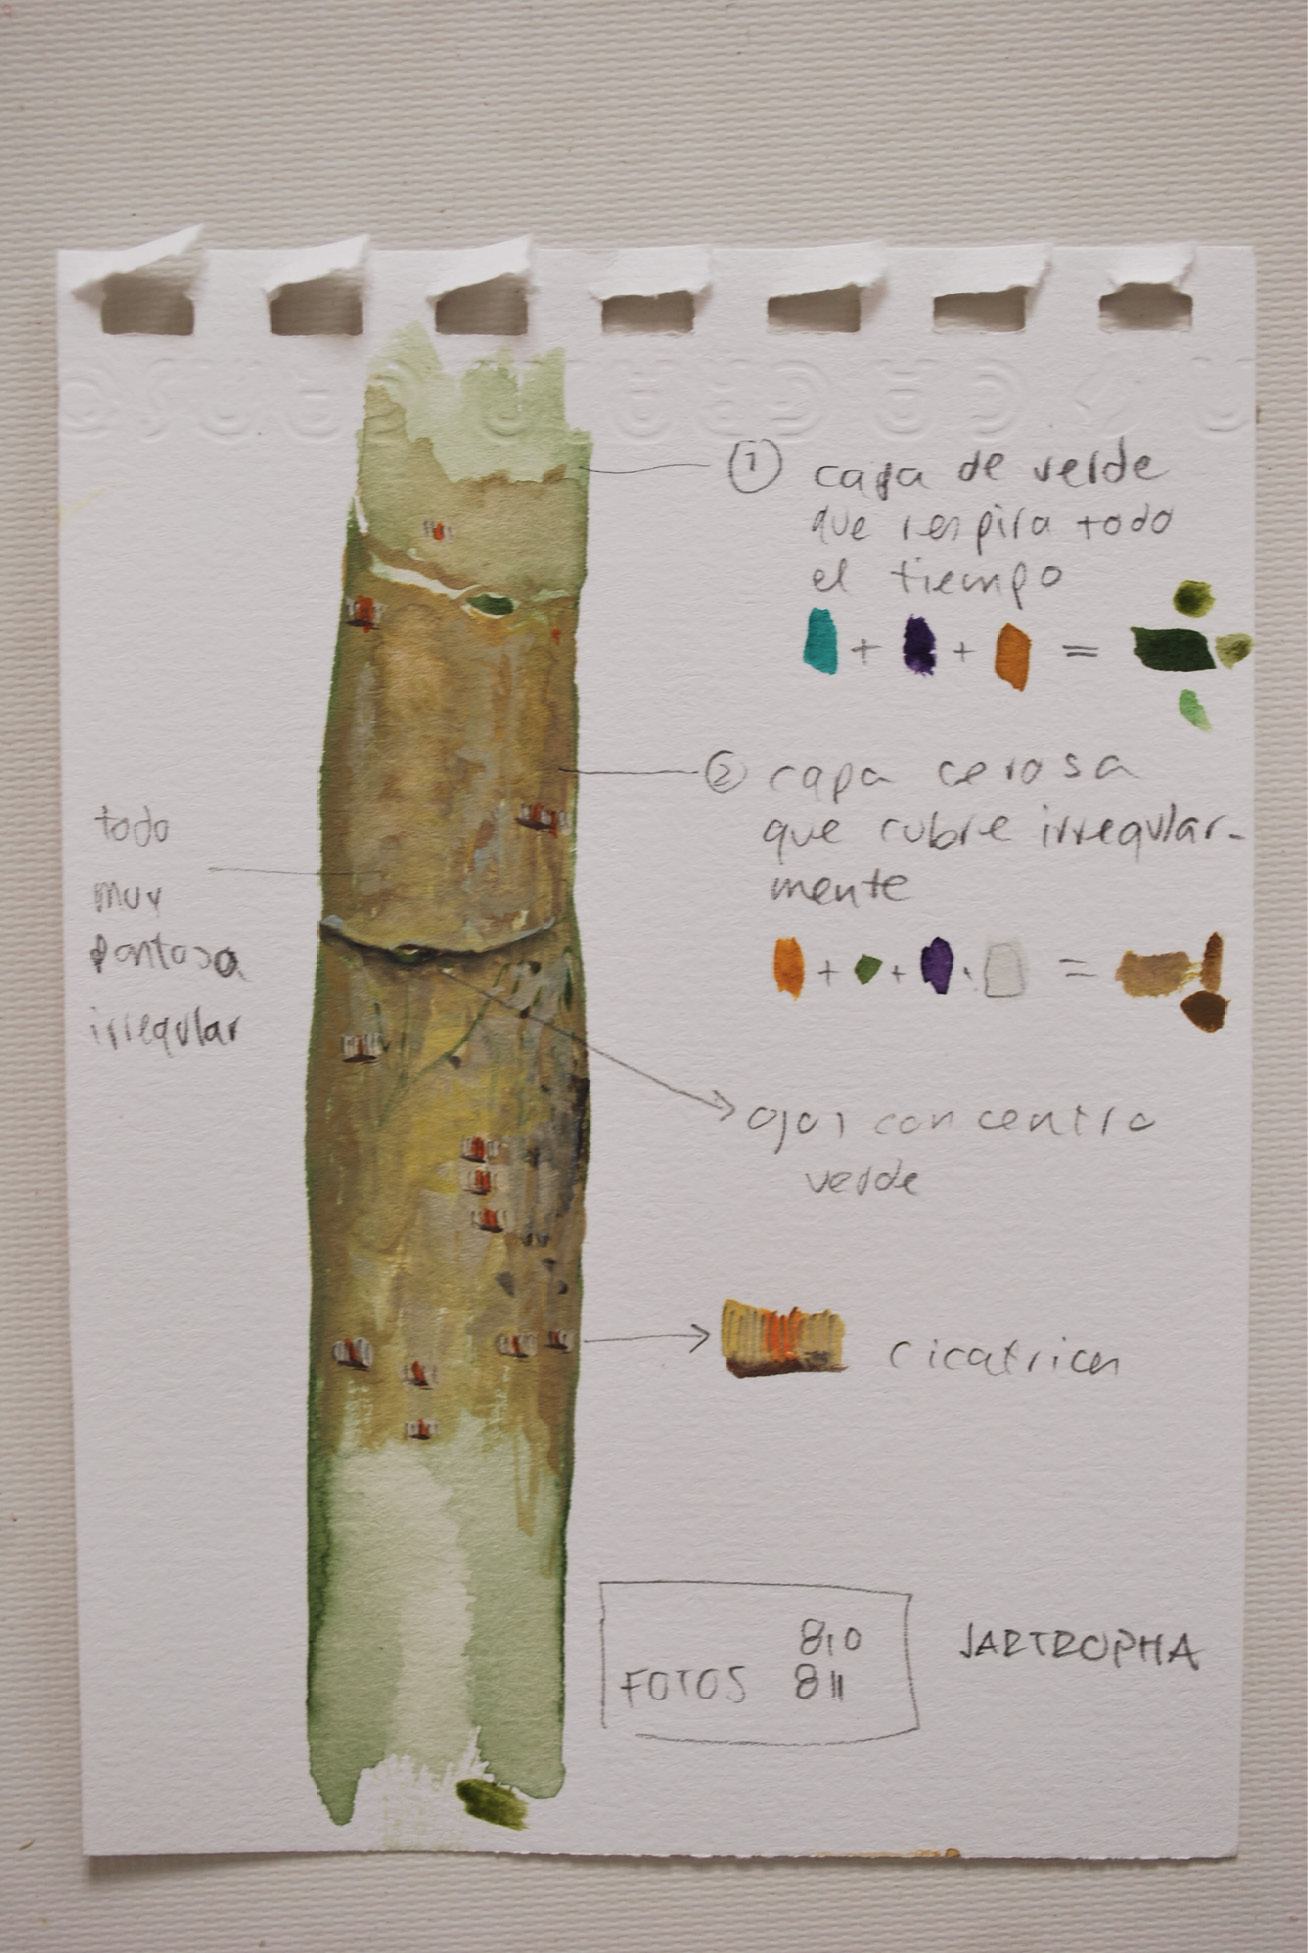 ① capa de verde
que respira todo
el tiempo
+ + =
② capa cerosa
que cubre irregular-
mente
+ + =
todo
muy
irregular
ojos con centro
verde
cicatrices
810
FOTOS 811
JARTROPHA